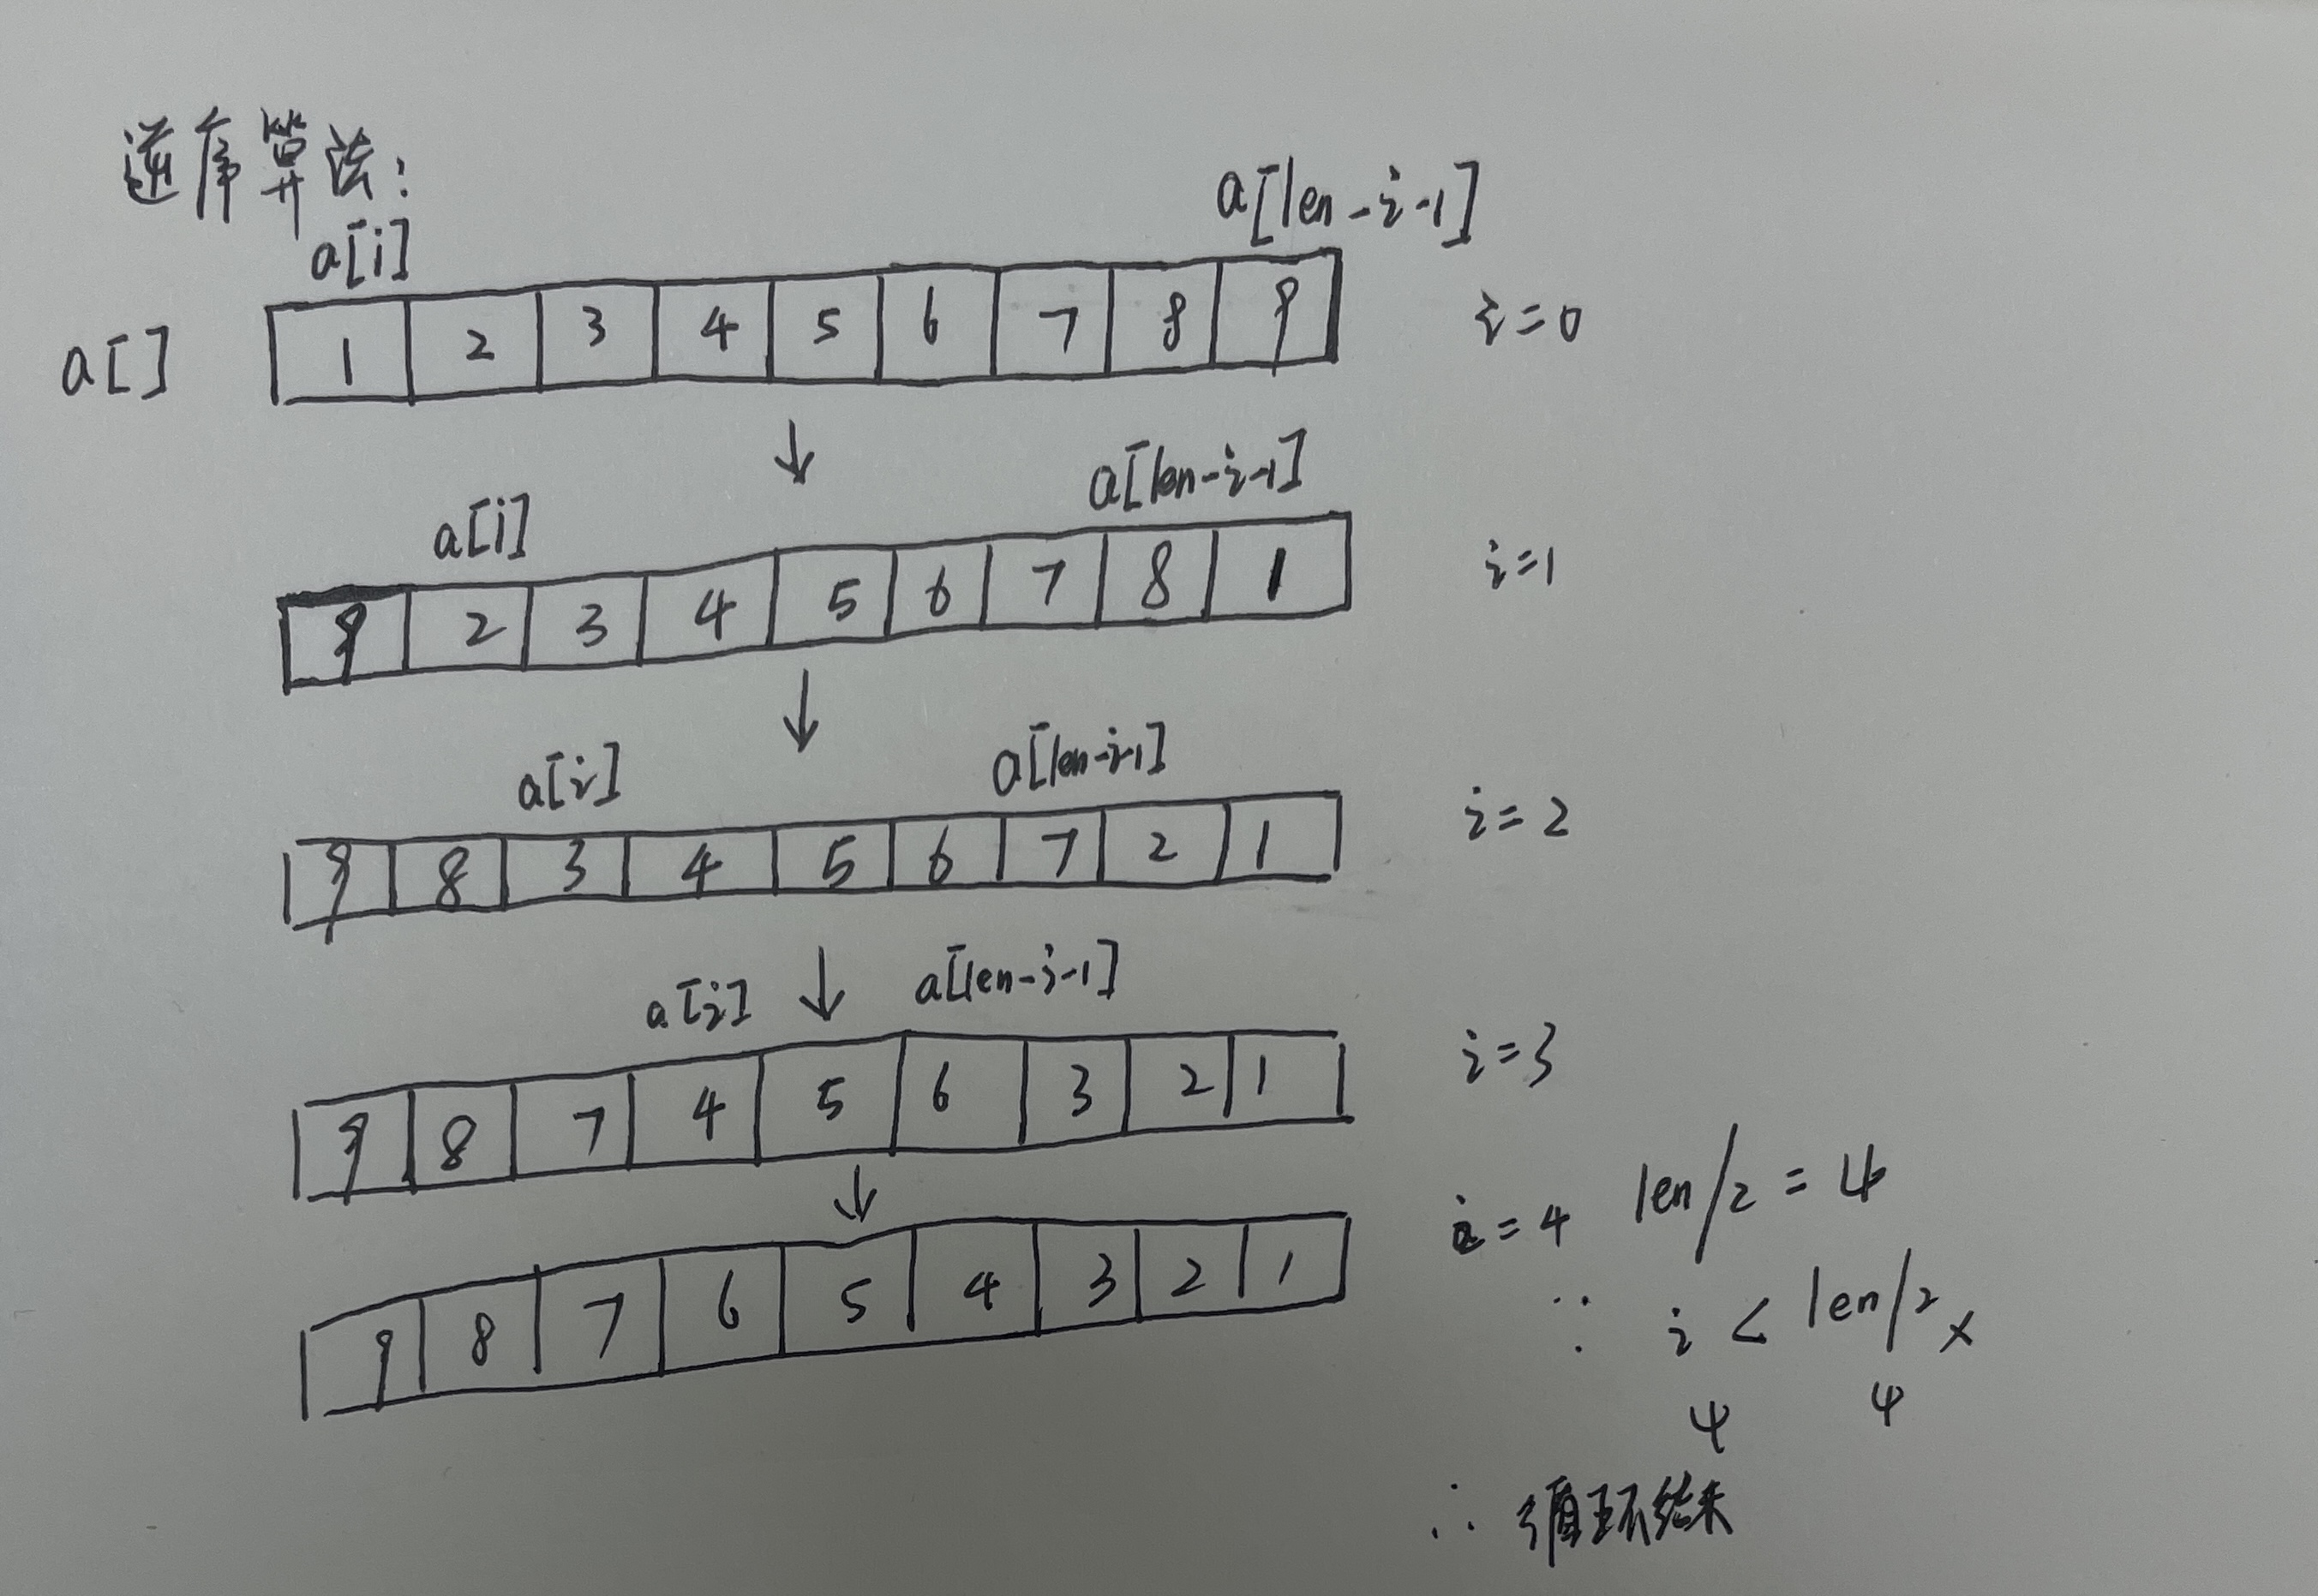 逆序算法:
a[i] a[len-i-1]
a[] 1 2 3 4 5 6 7 8 9 i=0
↓
a[i] a[len-i-1]
9 2 3 4 5 6 7 8 1 i=1
↓
a[i] a[len-i-1]
9 8 3 4 5 6 7 2 1 i=2
↓
a[i] a[len-i-1]
9 8 7 4 5 6 3 2 1 i=3
↓
i=4 len/2=4
9 8 7 6 5 4 3 2 1
∵ i < len/2 ×
4 4
∴ 循环结束